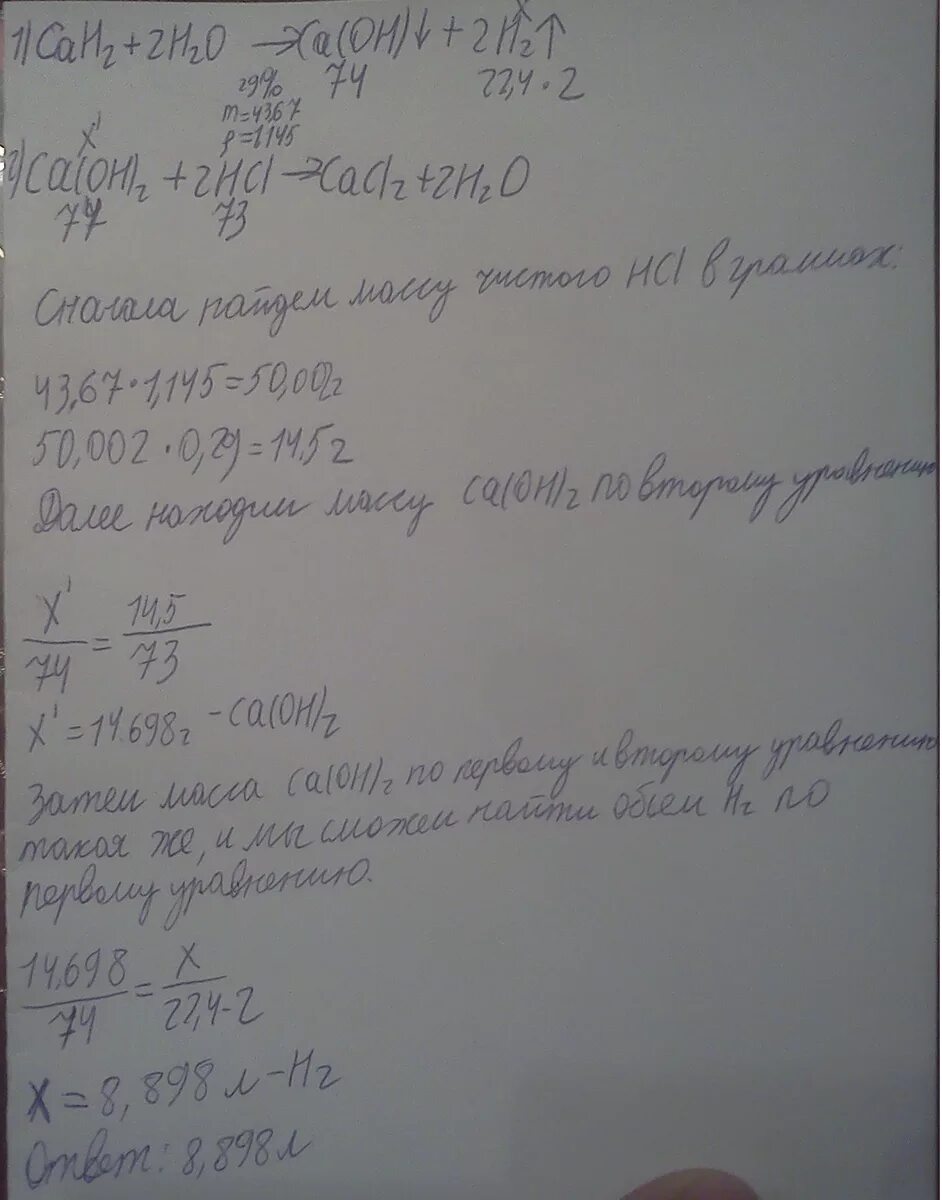 1) CaH₂ + 2H₂O → Ca(OH)↓ + 2H₂↑
x
29% 74 22,4 · 2
m=43,67
ρ=1,145
x'
2) Ca(OH)₂ + 2HCl → CaCl₂ + 2H₂O
74 73
Сначала найдем массу чистого HCl в граммах:
43,67 · 1,145 = 50,00г
50,00г · 0,29 = 14,5г
Далее находим массу Ca(OH)₂ по второму уравнению
x'/74 = 14,5/73
x' = 14.698г - Ca(OH)₂
Затем масса Ca(OH)₂ по первому и второму уравнению
такая же, и мы сможем найти обьем H₂ по
первому уравнению.
14,698/74 = x/22,4·2
X = 8,898 л - H₂
Ответ: 8,898л